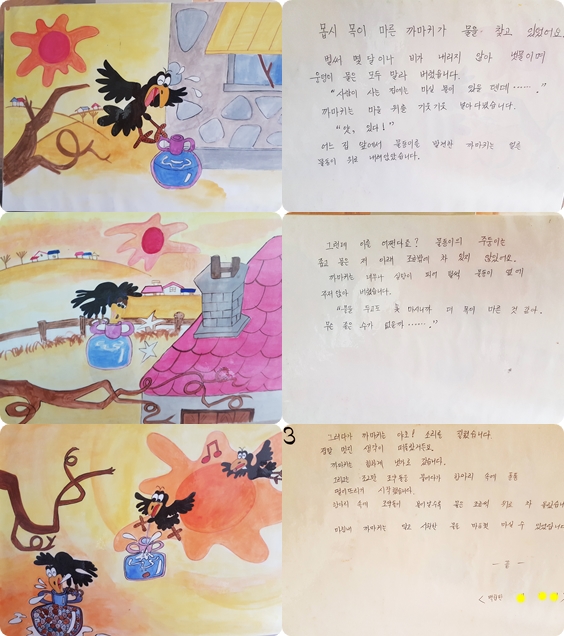 몹시 목이 마른 까마귀가 물을 찾고 있었어요.
벌써 몇 달이나 비가 내리지 않아 냇물이며
웅덩이 물은 모두 말라 버렸습니다.
"사람이 사는 집에는 마실 물이 있을 텐데……."
까마귀는 마을 위를 기웃기웃 보며 다녔습니다.
"앗, 있다!"
어느 집 앞에서 물동이를 발견한 까마귀는 얼른
물동이 위로 내려앉았습니다.
그런데 이를 어쩐다요? 물동이의 주둥이는
좁고 물은 저 아래 조금밖에 차 있지 않았어요.
까마귀는 너무나 실망이 되어 털썩 물동이 옆에
주저 앉아 버렸습니다.
"물을 두고도 못 마시니까 더 목이 마른 것 같아.
무슨 좋은 수가 없을까……."
3
그러다가 까마귀는 아호! 소리를 질렀습니다.
정말 멋진 생각이 떠올랐거든요.
까마귀는 힘차게 냇가로 갔습니다.
조그만 조약돌을 물어다가 항아리 속에 퐁퐁
떨어뜨리기 시작했습니다.
항아리 속에 조약돌이 쌓이실수록 물은 조금씩 위로 차
마침내 까마귀는 맑고 시원한 물을 마음껏 마실 수 있었답니다
- 끝 -